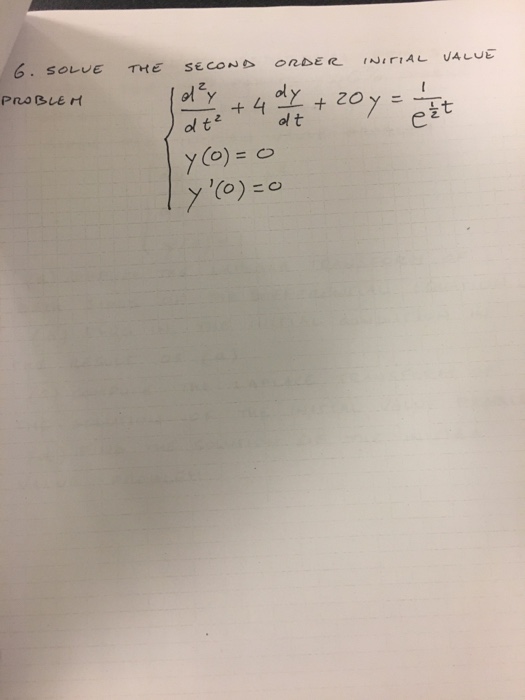 6. SOLVE THE SECOND ORDER INITIAL VALUE
PROBLEM
d²y/dt² + 4 dy/dt + 20y = 1/e^(1/2 t)
y(0) = 0
y'(0) = 0